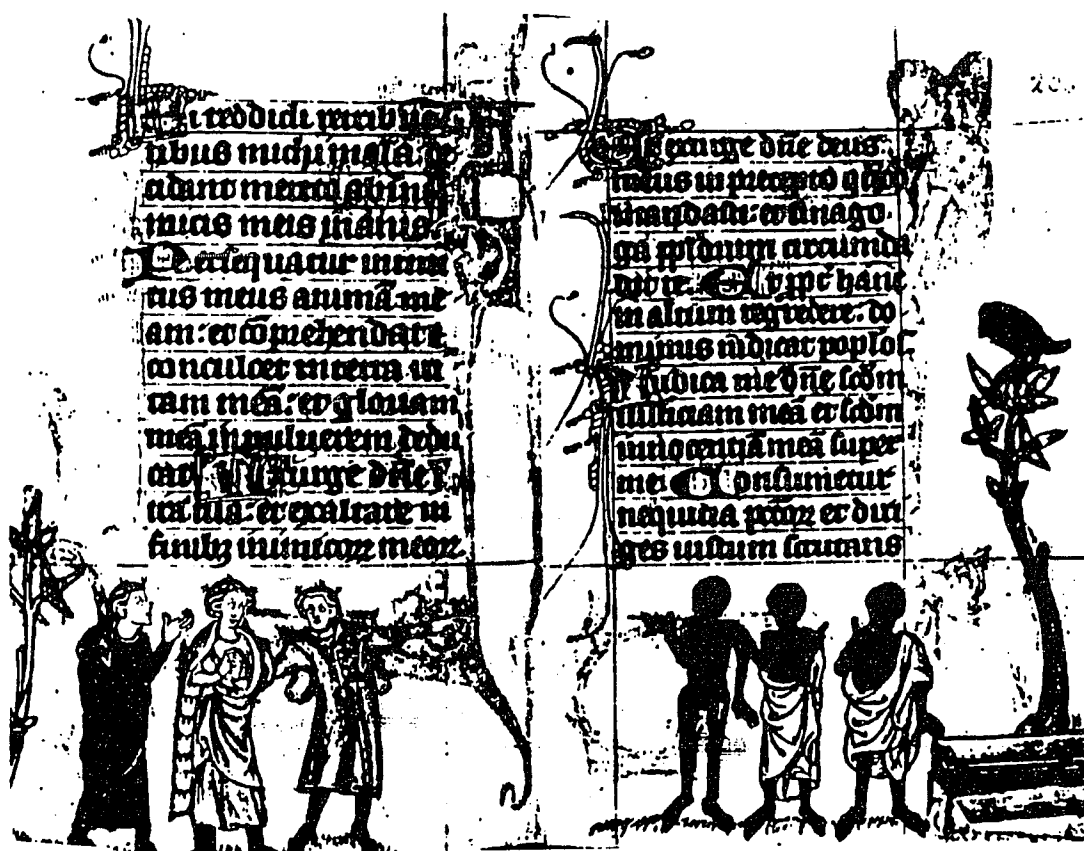 si reddidi retribuen
tibus michi mala: de
cidant merito ab ini
micis meis inanis.
Persequatur inimi
cus meus animā me
am: et cōprehendat et
conculcet in terra ui
tam meā: et gloriam
meā in puluerem dedu
cat. Exurge dn̄e ī
ira tua: et exaltare in
finibꝫ inimicoꝝ meoꝝ
Et exurge dn̄e deus
meus in precepto qd̄
mandasti: et sinago
ga ppl̄orum circumda
bit te. Et ppt̄ hanc
in altum regredere: do
minus iudicat poplos
Iudica me dn̄e scd̄m
iusticiam meā et scd̄m
innocentiā meā super
me. Consumetur
nequicia pctōꝝ et diri
ges iustum scrutans